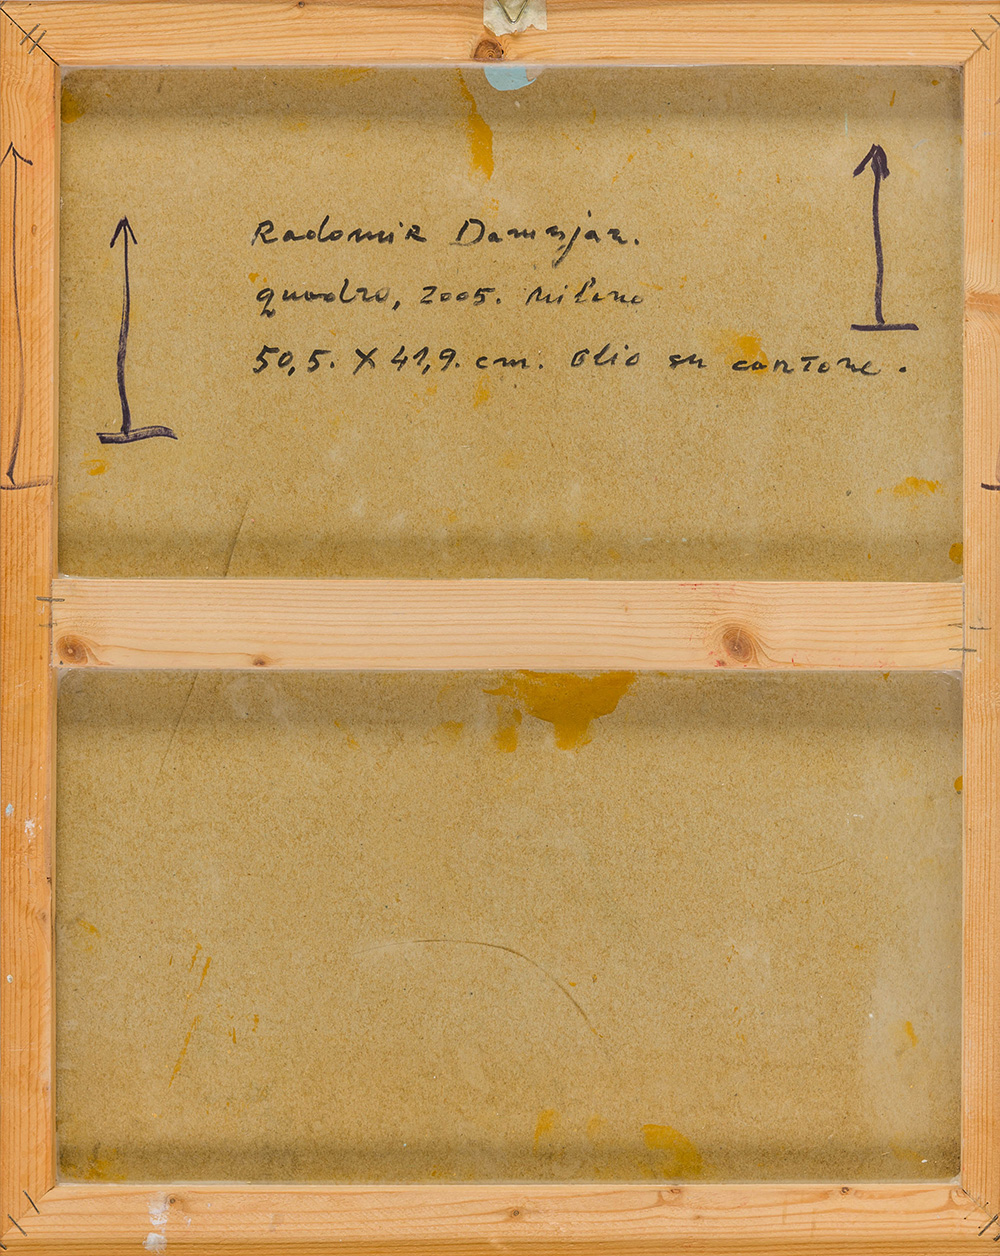 Radomir Damnjan.
quadro, 2005. Milano
50,5. X 41,9. cm. olio su cartone.